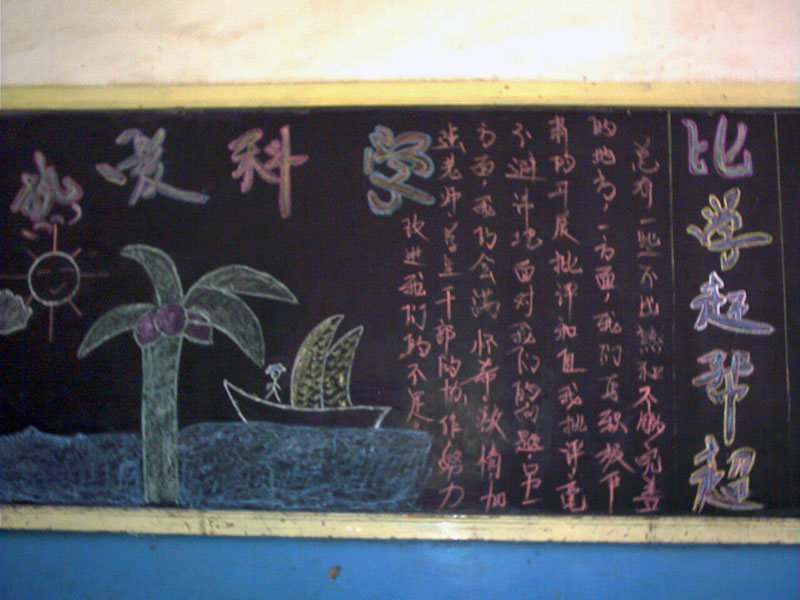 比学赶帮超
总有一些不成熟和不够完善
的地方,一方面,我们积极
的开展批评和自我批评毫
不避讳地面对我们的问题另一
方面,我们会满怀激情加
强老师,学生干部的协作努力
改进我们的不足。
热爱科学